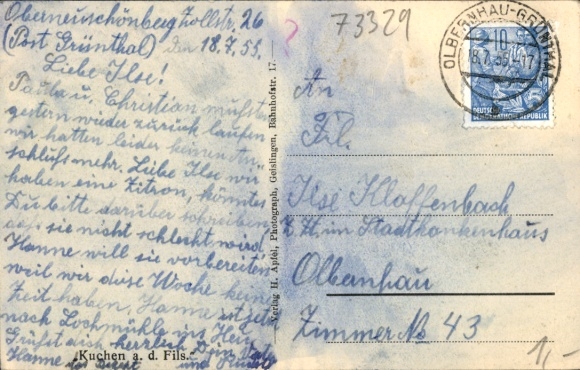 Oberneuschönberg Zollstr. 26
(Post Grünthal) Den 18.7.55.
Liebe Ilse!
Paula u. Christian mußten
gestern wieder zurück laufen
wir hatten leider keinen An-
schluß mehr. Liebe Ilse wir
haben eine Zitron, könntes
Du bitte darüber schreiben
das sie nicht schlecht wird
Hanne will sie vorbereiten
weil wir diese Woche keine
Zeit haben, Hanne ist jetzt
nach Lochmühle ins Heu
Grüßt dich herrlich Dein
Hanne und
"Kuchen a. d. Fils."
Verlag H. Apfel, Photograph, Geislingen, Bahnhofstr. 17
73329
OLBERNHAU-GRÜNTHAL
18.7.55.-17
10
DEUTSCHE
DEMOKRATISCHE REPUBLIK
An
Frl.
Ilse Kloffenbach
z. Zt. im Stadtkrankenhaus
Olbernhau
Zimmer No 43
1,-